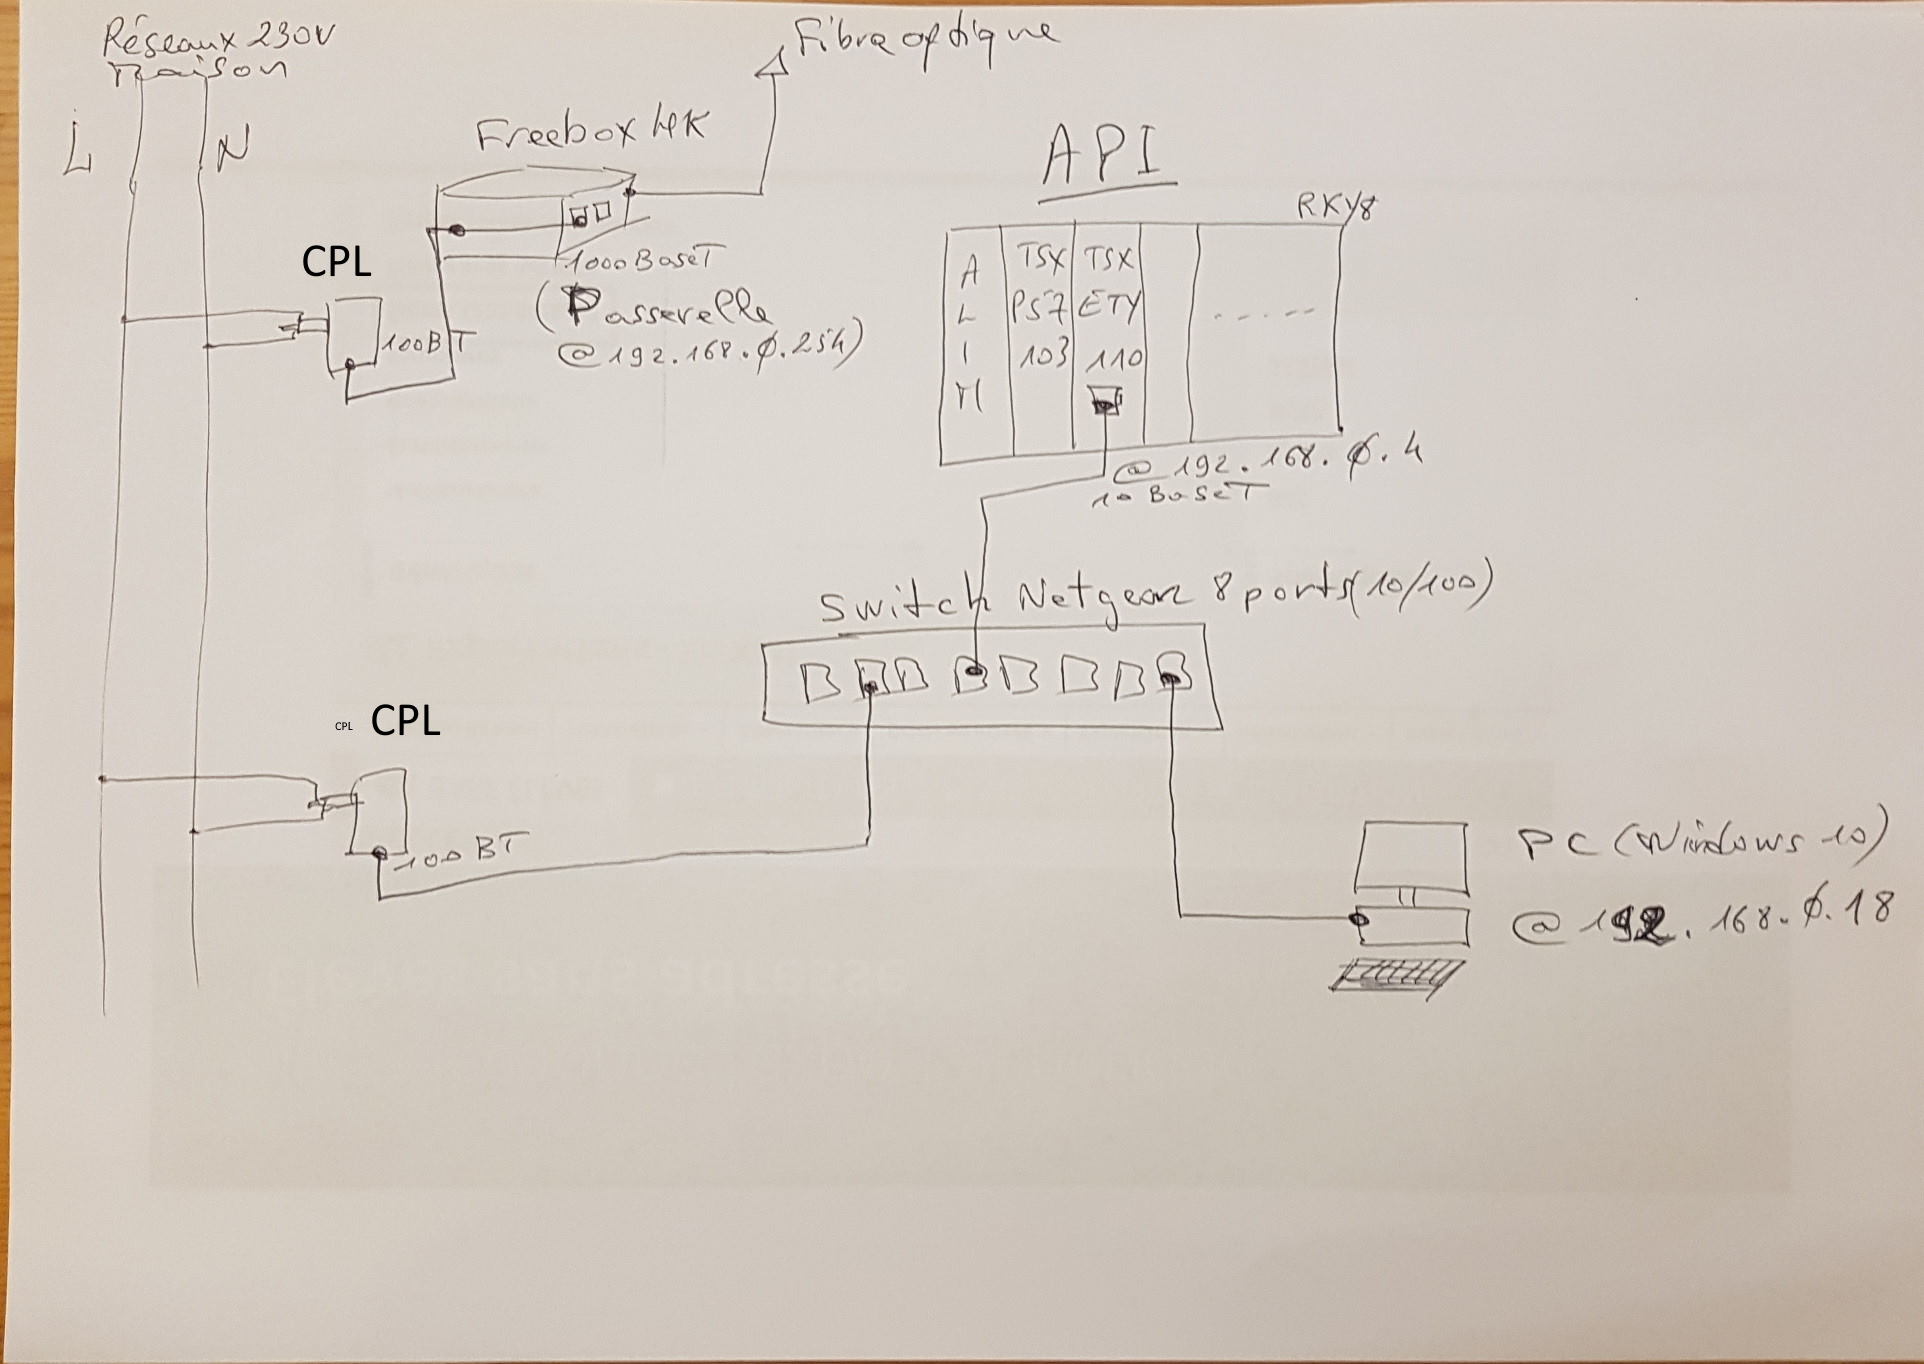 Réseaux 230V
Maison
L
N
Fibre optique
Freebox 4K
1000BaseT
(Passerelle
@192.168.0.254)
CPL
100BT
API
RKY8
A
L
I
M
TSX
P57
103
TSX
ETY
110
.....
@ 192.168.0.4
10 BaseT
Switch Netgear 8 ports(10/100)
CPL CPL
100 BT
PC (Windows 10)
@ 192.168.0.18